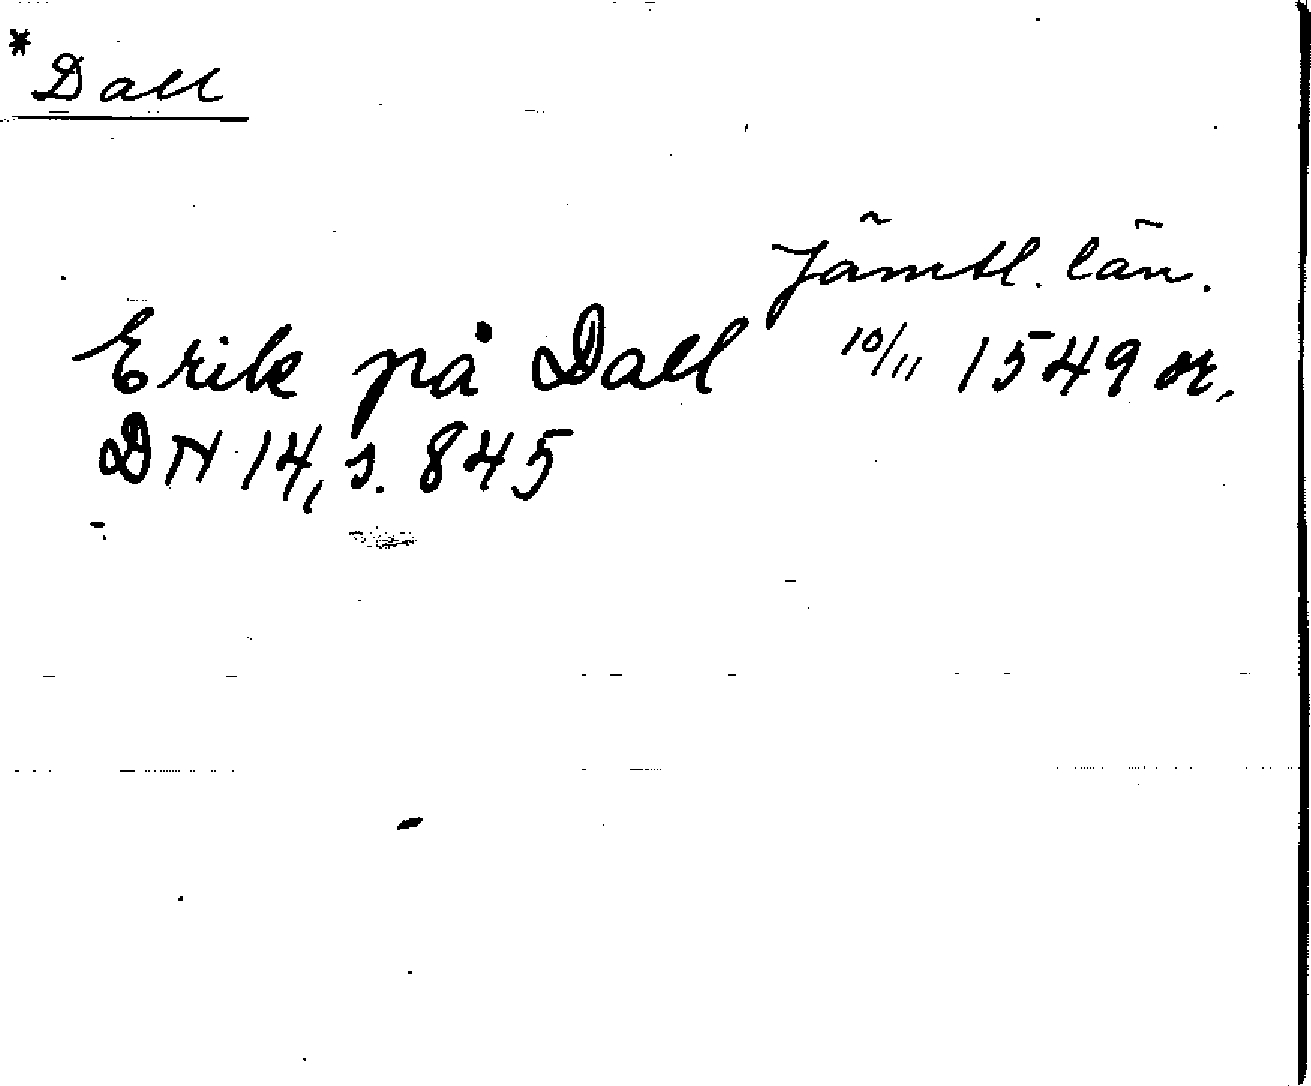 *Dall
Jämtl. län.
Erik på Dall 10/11 1549 or.
DN 14, s. 845